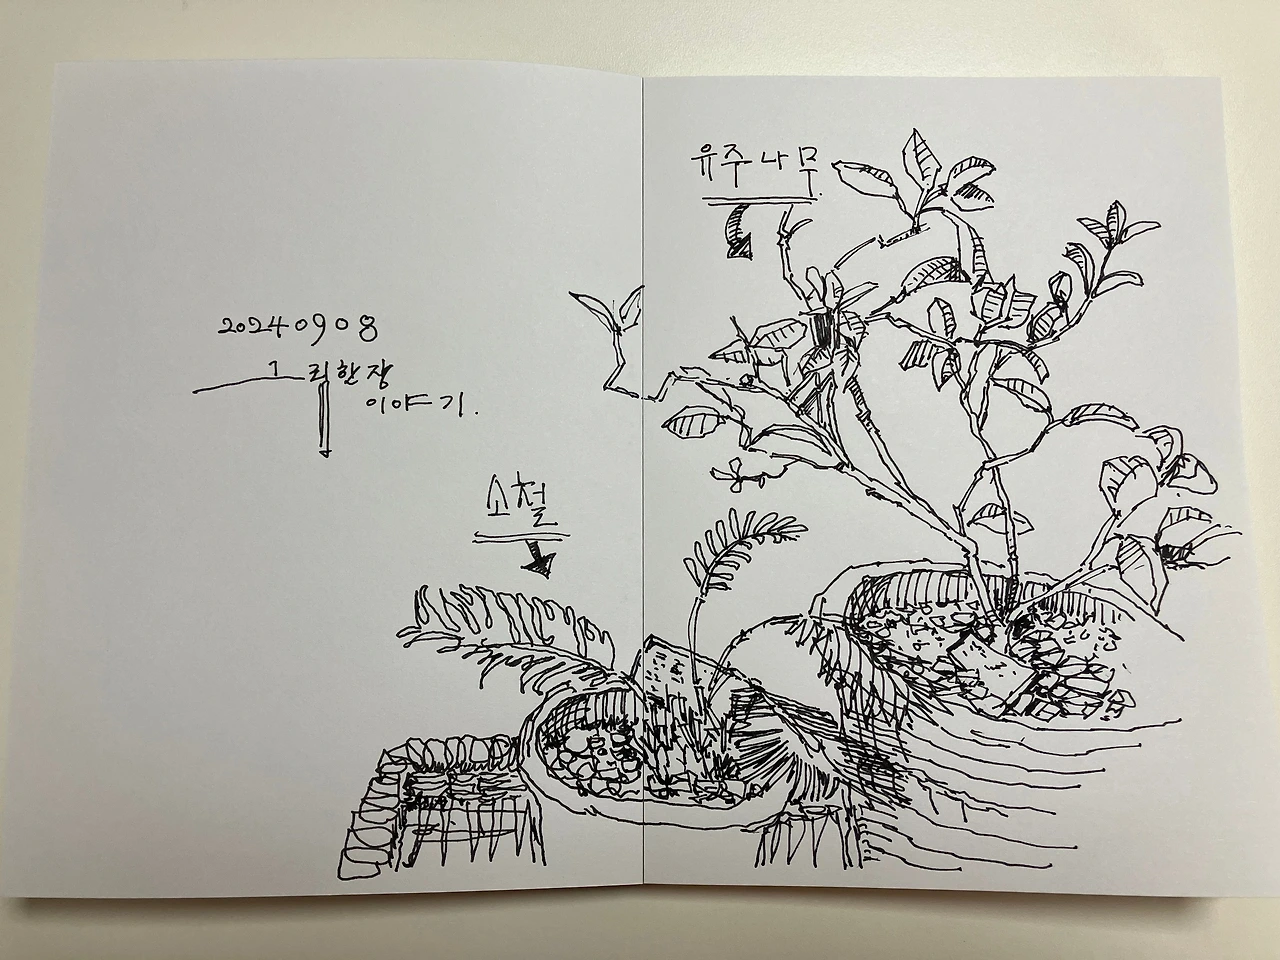 20240908
그리한장
이야기.
소철
유주나무.